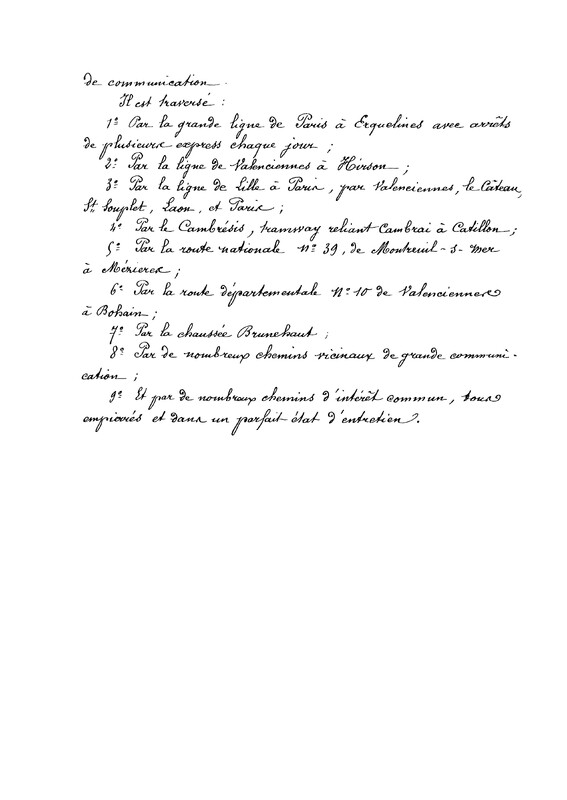 de communication.
Il est traversé :
1º Par la grande ligne de Paris à Erquelines avec arrêts
de plusieurs express chaque jour ;
2º Par la ligne de Valenciennes à Hirson ;
3º Par la ligne de Lille à Paris, par Valenciennes, le Câteau,
St Souplet, Laon, et Paris ;
4º Par le Cambrésis, tramway reliant Cambrai à Catillon ;
5º Par la route nationale nº 39, de Montreuil-s-mer
à Mézieres ;
6º Par la route départementale Nº 10 de Valenciennes
à Bohain ;
7º Par la chaussée Brunehaut ;
8º Par de nombreux chemins vicinaux de grande communi-
cation ;
9º Et par de nombreux chemins d'intérêt commun, tous
empierrés et dans un parfait état d'entretien.